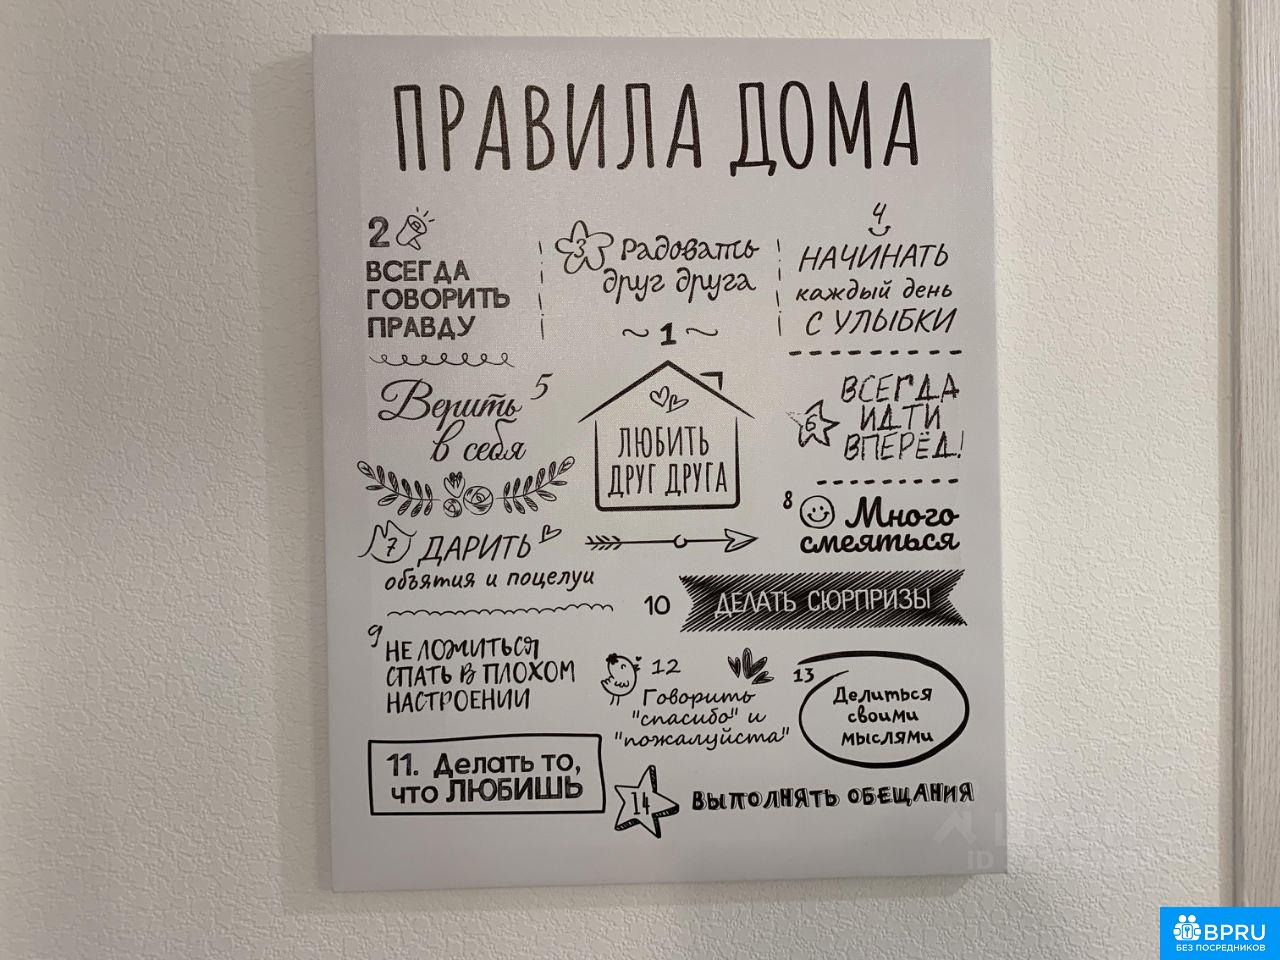 ПРАВИЛА ДОМА
2
ВСЕГДА
ГОВОРИТЬ
ПРАВДУ
3 Радовать
друг друга
4
НАЧИНАТЬ
каждый день
С УЛЫБКИ
~ 1 ~
ЛЮБИТЬ
ДРУГ ДРУГА
Верить 5
в себя
6 ВСЕГДА
ИДТИ
ВПЕРЁД!
7 ДАРИТЬ
объятия и поцелуи
8 Много
смеяться
9 НЕ ЛОЖИТЬСЯ
СПАТЬ В ПЛОХОМ
НАСТРОЕНИИ
10 ДЕЛАТЬ СЮРПРИЗЫ
11. Делать то,
что ЛЮБИШЬ
12
Говорить
"спасибо" и
"пожалуйста"
13
Делиться
своими
мыслями
14 ВЫПОЛНЯТЬ ОБЕЩАНИЯ
ID
BPRU
БЕЗ ПОСРЕДНИКОВ